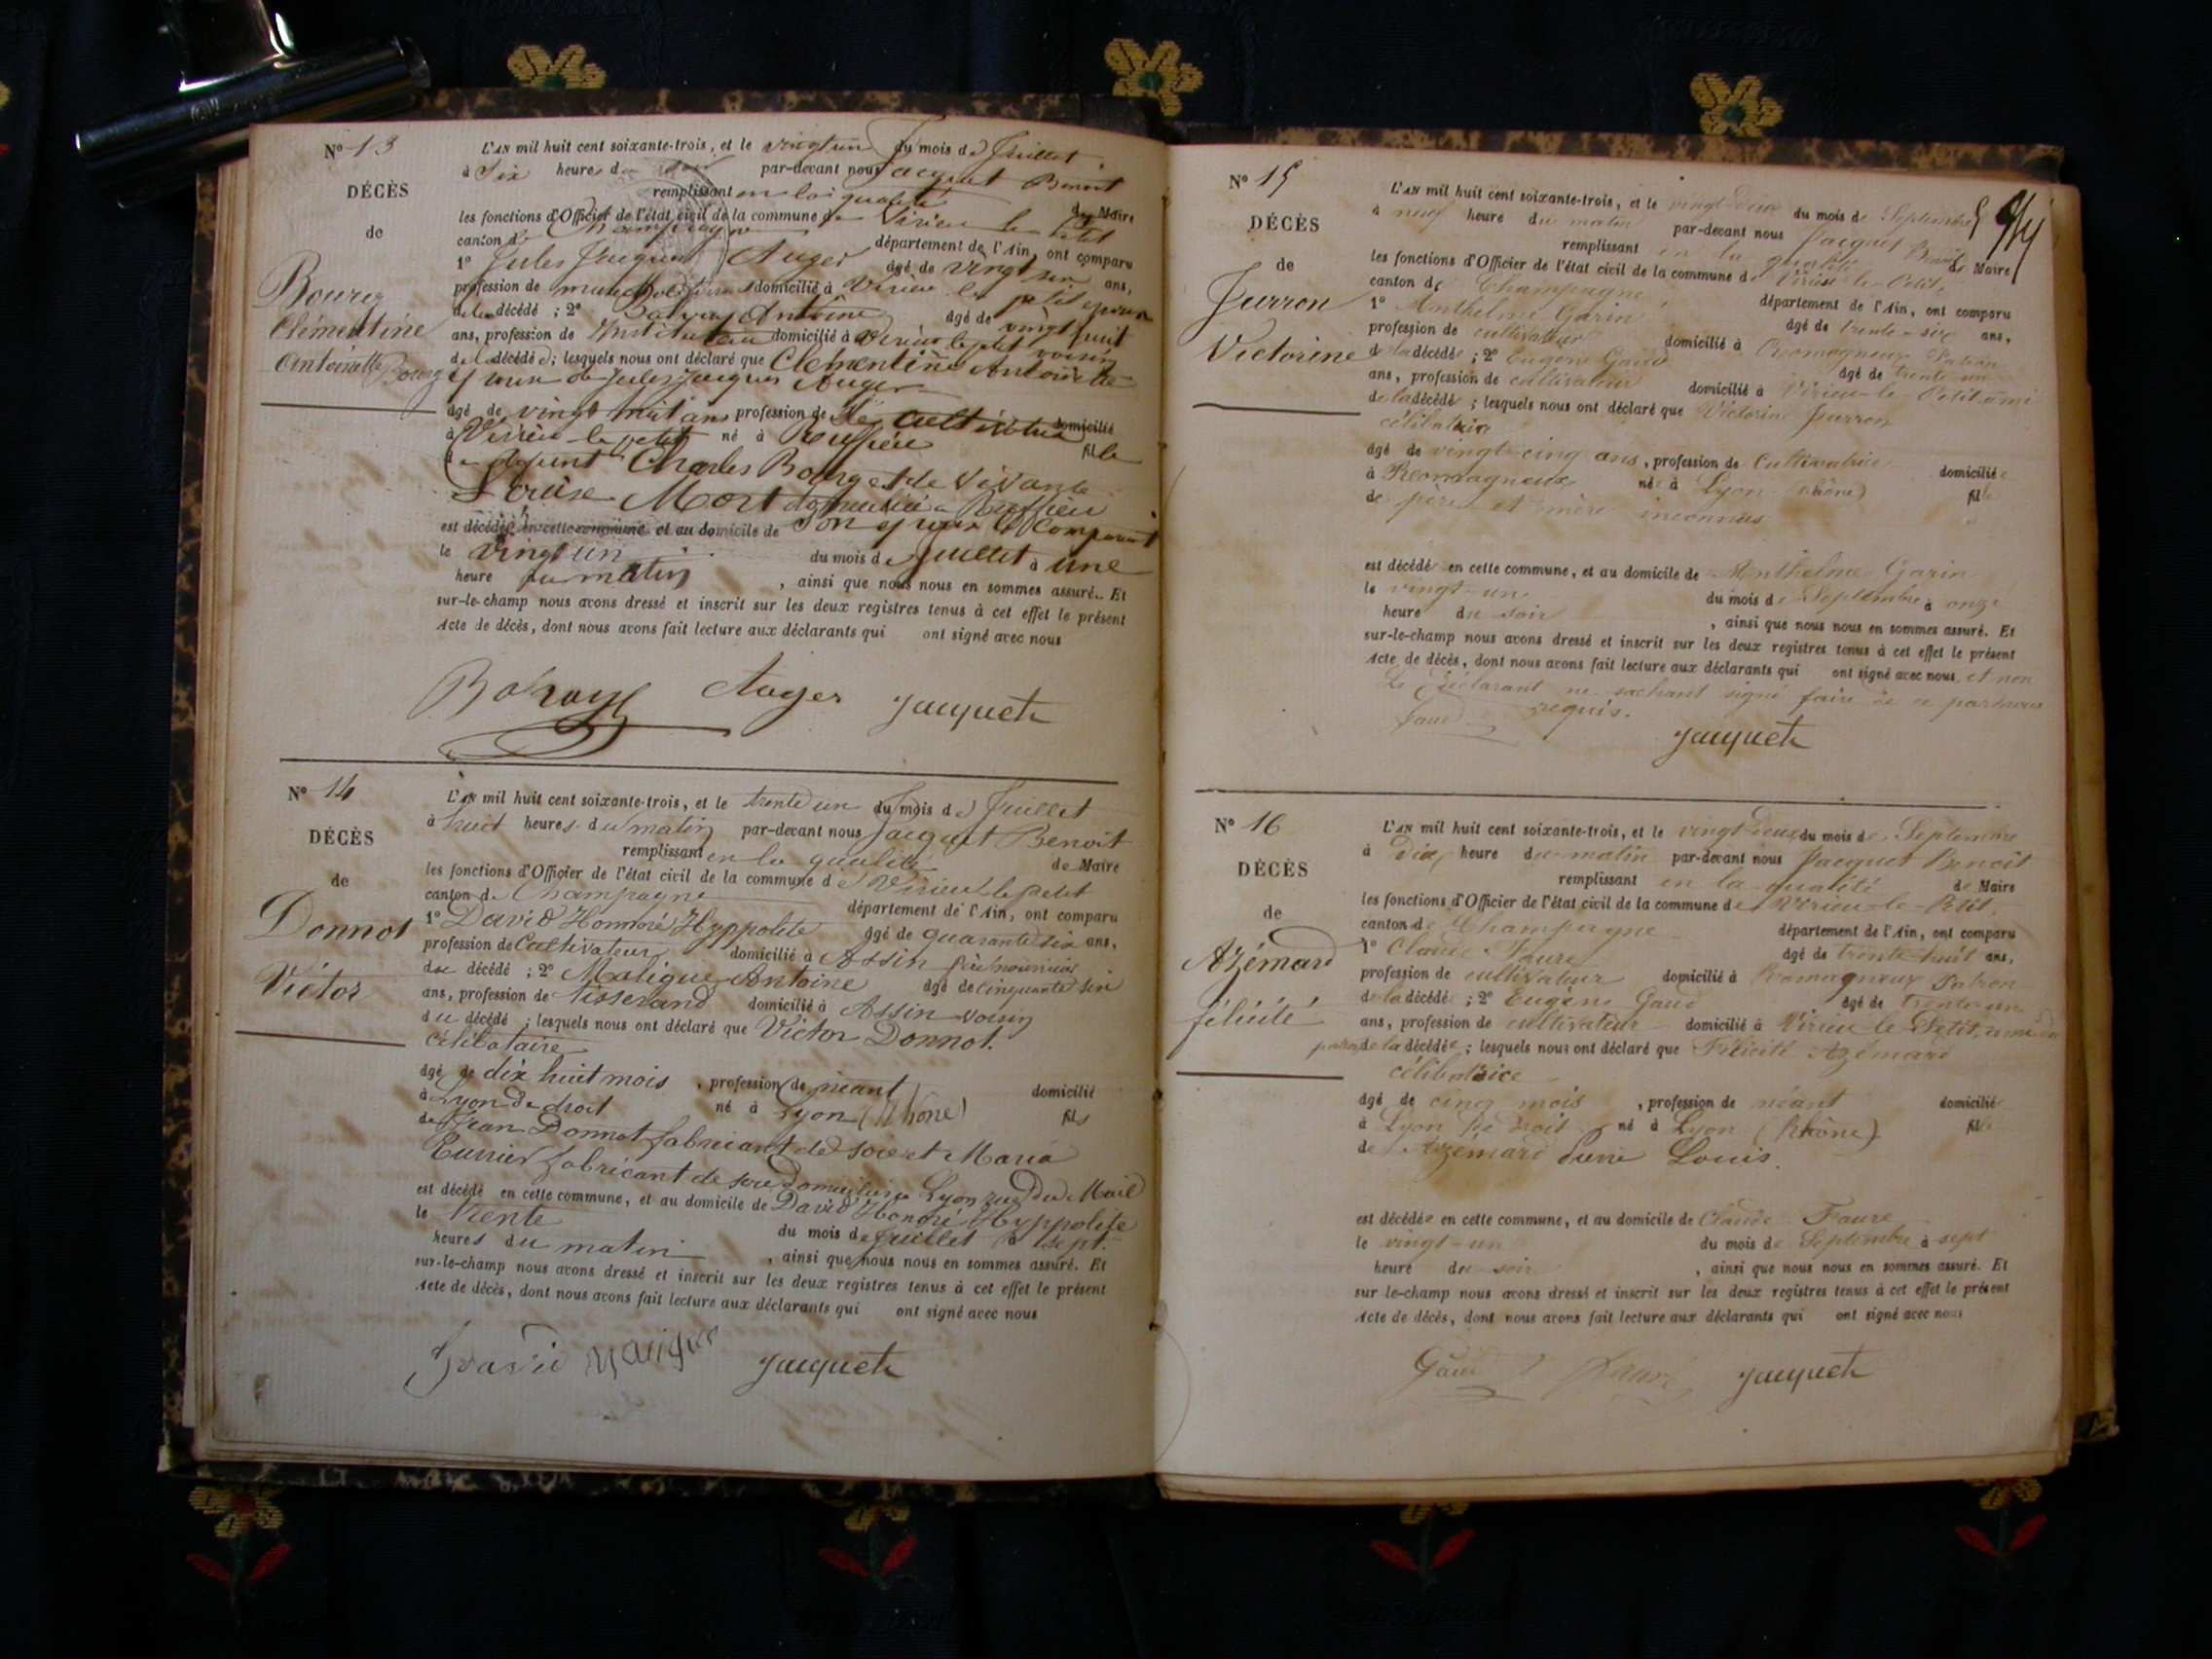 N° 13
DÉCÈS
de
Bourg
Clémentine
Antoinette Bourg
L'AN mil huit cent soixante-trois, et le vingt un du mois de Juillet
à Six heures du soir par-devant nous Jacquet Benoit
remplissant en la qualité de Maire
les fonctions d'Officier de l'état civil de la commune de Virieu le petit
canton de Champagne département de l'Ain, ont comparu
1° Jules Jacques Auger âgé de vingt six ans,
profession de domicilié à Virieu le petit epoux
de la décédé ; 2° Antoine âgé de vingt huit
ans, profession de Instituteur domicilié à Virieu le petit voisin
de la décédée ; lesquels nous ont déclaré que Clementine Antoinette
epouse de Jules Jacques Auger
âgé de vingt huit ans profession de cultivatrice domicilié
à Virieu le petit né à Ruffieu fille
de defunt Charles Bourg et de vivante
Louise Mort domiciliée a Ruffieu
est décédée en cette commune et au domicile de son epoux le Comparant
le vingt un du mois de Juillet à une
heure du matin , ainsi que nous nous en sommes assuré. Et
sur-le-champ nous avons dressé et inscrit sur les deux registres tenus à cet effet le présent
Acte de décès, dont nous avons fait lecture aux déclarants qui ont signé avec nous
Auger Jacquet
N° 14
DÉCÈS
de
Donnot
Victor
L'AN mil huit cent soixante-trois, et le trente un du mois de Juillet
à huit heures du matin par-devant nous Jacquet Benoit
remplissant en la qualité de Maire
les fonctions d'Officier de l'état civil de la commune de Virieu le petit
canton de Champagne département de l'Ain, ont comparu
1° David Honnoré Hyppolite âgé de quarante six ans,
profession de Cultivateur domicilié à Assin père nourricier
du décédé ; 2° Matigue Antoine âgé de cinquante six
ans, profession de tisserand domicilié à Assin voisin
du décédé ; lesquels nous ont déclaré que Victor Donnot.
Célibataire
âgé de dix huit mois , profession de néant domicilié
à Lyon de droit né à Lyon (Rhône) fils
de Jean Donnot fabricant de soie et Maria
fabricant de soie domiciliés a Lyon rue du Mail
est décédé en cette commune, et au domicile de David Honoré Hyppolite
le trente du mois de Juillet à sept
heures du matin , ainsi que nous nous en sommes assuré. Et
sur-le-champ nous avons dressé et inscrit sur les deux registres tenus à cet effet le présent
Acte de décès, dont nous avons fait lecture aux déclarants qui ont signé avec nous
David Jacquet
N° 15
DÉCÈS
de
Jurron
Victorine
L'AN mil huit cent soixante-trois, et le vingt-deux du mois de Septembre
à neuf heure du matin par-devant nous Jacquet Benoit
remplissant en la qualité de Maire
les fonctions d'Officier de l'état civil de la commune de Virieu-le-Petit,
canton de Champagne, département de l'Ain, ont comparu
1° Anthelme Garin âgé de trente-six ans,
profession de cultivateur domicilié à Romagneux Patron
de la décédée ; 2° Eugène Gaud âgé de trente un
ans, profession de cultivateur domicilié à Virieu-le-Petit ami
de la décédée ; lesquels nous ont déclaré que Victorine Jurron
célibataire
âgé de vingt-cinq ans, profession de Cultivatrice domiciliée
à Romagneux née à Lyon (Rhône) fille
de père et mère inconnus
est décédée en cette commune, et au domicile de Anthelme Garin
le vingt-un du mois de Septembre à onze
heure du soir , ainsi que nous nous en sommes assuré. Et
sur-le-champ nous avons dressé et inscrit sur les deux registres tenus à cet effet le présent
Acte de décès, dont nous avons fait lecture aux déclarants qui ont signé avec nous, et non
Le déclarant ne sachant signé faire de ce par nous
Gaud requis.
Jacquet
N° 16
DÉCÈS
de
Azémard
félicité
L'AN mil huit cent soixante-trois, et le vingt-deux du mois de Septembre
à Dix heure du matin par-devant nous Jacquet Benoit
remplissant en la qualité de Maire
les fonctions d'Officier de l'état civil de la commune de Virieu-le-Petit,
canton de Champagne département de l'Ain, ont comparu
1° Claude Faure âgé de trente-huit ans,
profession de cultivateur domicilié à Romagneux Patron
de la décédé ; 2° Eugène Gaud âgé de trente-un
ans, profession de cultivateur domicilié à Virieu-le-Petit, ami du
patron de la décédée ; lesquels nous ont déclaré que Félicité Azémard
célibatrice
âgé de cinq mois , profession de néant domiciliée
à Lyon de droit né à Lyon (Rhône) fille
de Azémard Pierre Louis.
est décédée en cette commune, et au domicile de Claude Faure
le vingt-un du mois de Septembre à sept
heure du soir , ainsi que nous nous en sommes assuré. Et
sur-le-champ nous avons dressé et inscrit sur les deux registres tenus à cet effet le présent
Acte de décès, dont nous avons fait lecture aux déclarants qui ont signé avec nous
Gaud Faure Jacquet